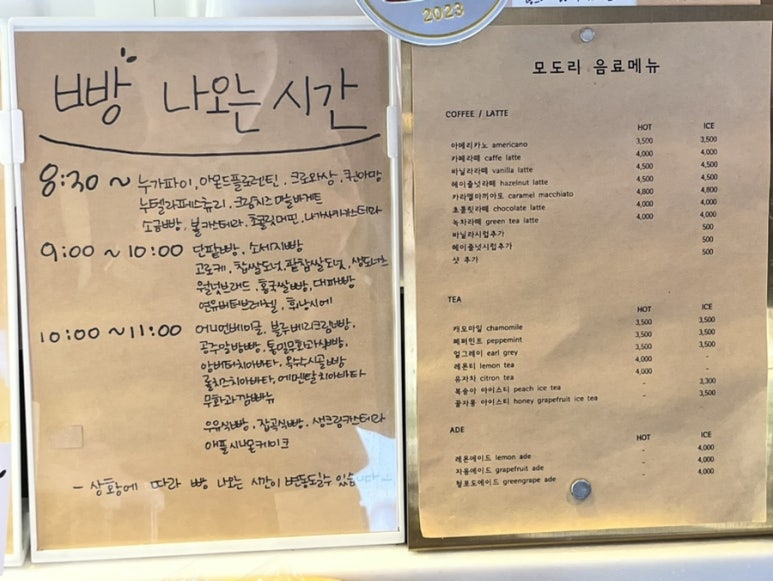 2023
빵 나오는 시간
8:30 ~ 누가파이, 아몬드플로렌틴, 크로와상, 퀸아망
누텔라페스츄리, 크림치즈마늘바게트
소금빵, 볼카스테라, 초콜릿머핀, 나가사키카스테라
9:00 ~ 10:00 단팥빵, 소세지빵
고로케, 찹쌀도넛, 팥찹쌀도넛, 생도너츠
월넛브래드, 홍국쌀빵, 대파빵
연유버터브레첼, 휘낭시에
10:00 ~ 11:00 어니언베이글, 블루베리크림빵,
공주밤빵, 통밀무화과식빵,
앙버터치아바타, 옥수수시골빵
롤치즈치아바타, 에멘탈치아바타
무화과깜빠뉴
우유식빵, 잡곡식빵, 생크림카스테라
애플시나몬케이크
- 상황에 따라 빵 나오는 시간이 변동될수 있습니다 -
모도리 음료메뉴
COFFEE / LATTE
HOT ICE
아메리카노 americano 3,500 3,500
카페라떼 caffe latte 4,000 4,000
바닐라라떼 vanilla latte 4,500 4,500
헤이즐넛라떼 hazelnut latte 4,500 4,500
카라멜마끼아또 caramel macchiato 4,800 4,800
초콜릿라떼 chocolate latte 4,000 4,000
녹차라떼 green tea latte 4,000 4,000
바닐라시럽추가 500
헤이즐넛시럽추가 500
샷 추가 500
TEA
HOT ICE
캐모마일 chamomile 3,500 3,500
페퍼민트 peppemint 3,500 3,500
얼그레이 earl grey 3,500 3,500
레몬티 lemon tea 4,000 -
유자차 citron tea 4,000 -
복숭아 아이스티 peach ice tea - 3,300
꿀자몽 아이스티 honey grapefruit ice tea - 3,500
ADE
HOT ICE
레몬에이드 lemon ade - 4,000
자몽에이드 grapefruit ade - 4,000
청포도에이드 greengrape ade - 4,000